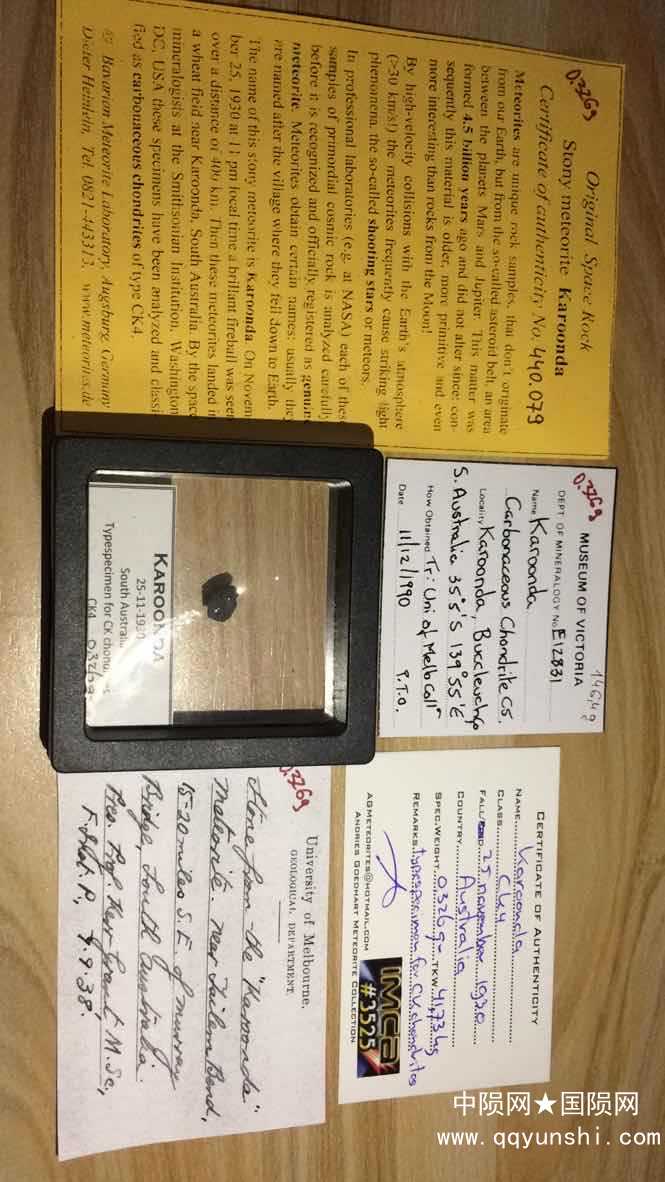 0.326g
Original Space Rock
Stony meteorite Karoonda
Certificate of authenticity No. 440.079
Meteorites are unique rock samples, that don't originate
from our Earth, but from the so-called asteroid belt, an area
between the planets Mars and Jupiter. This matter was
formed 4.5 billion years ago and did not alter since: con-
sequently this material is older, more primitive and even
more interesting than rocks from the Moon!
By high-velocity collisions with the Earth's atmosphere
(>30 km/s!) the meteorites frequently cause striking light
phenomena, the so-called shooting stars or meteors.
In professional laboratories (e.g. at NASA) each of these
samples of primordial cosmic rock is analyzed carefully
before it is recognized and officially registered as genuin
meteorite. Meteorites obtain certain names: usually they
are named after the village where they fell down to Earth.
The name of this stony meteorite is Karoonda. On Novem
ber 25, 1930 at 11 pm local time a brillant fireball was seen
over a distance of 400 km. Then these meteorites landed i
a wheat field near Karoonda, South Australia. By the space
mineralogists at the Smithsonian Institution, Washington
DC, USA these specimens have been analyzed and classi
fied as carbonaceous chondrites of type CK4.
Bavarian Meteorite Laboratory, Augsburg, Germany
Dieter Heinlein, Tel. 0821-443313, www.meteorites.de
0.326g
146,49
MUSEUM OF VICTORIA
DEPT OF MINERALOGY No. E12831
Name Karoonda
Carbonaceous Chondrite C5.
Locality Karoonda, Buccleuch Co
S. Australia 35°5'S 139°55'E
How Obtained Tr: Uni of Melb Coll
Date 11/12/1990 P.T.O.
KAROONDA
25-11-1930
South Australia
Typespecimen for CK chond
CK4 0,326g
CERTIFICATE OF AUTHENTICITY
NAME Karoonda
CLASS CK4
FALL 25 november 1930
COUNTRY Australia
SPEC.WEIGHT 0,326g TKW 41,73 kg
REMARKS typespecimen for CK chondrites
AGMETEORITES@HOTMAIL.COM
ANDRIES GOEDHART METEORITE COLLECTION
imca
#3525
0.326g
University of Melbourne.
GEOLOGICAL DEPARTMENT.
Stone from the "Karoonda"
Meteorite. Near Tailem Bend,
15-20 miles S.E of Murray
Bridge, South Australia.
Pres. Prof. Kerr Grant M.Sc,
F.Inst.P., 9.9.38.
中陨网★国陨网
www.qqyunshi.com